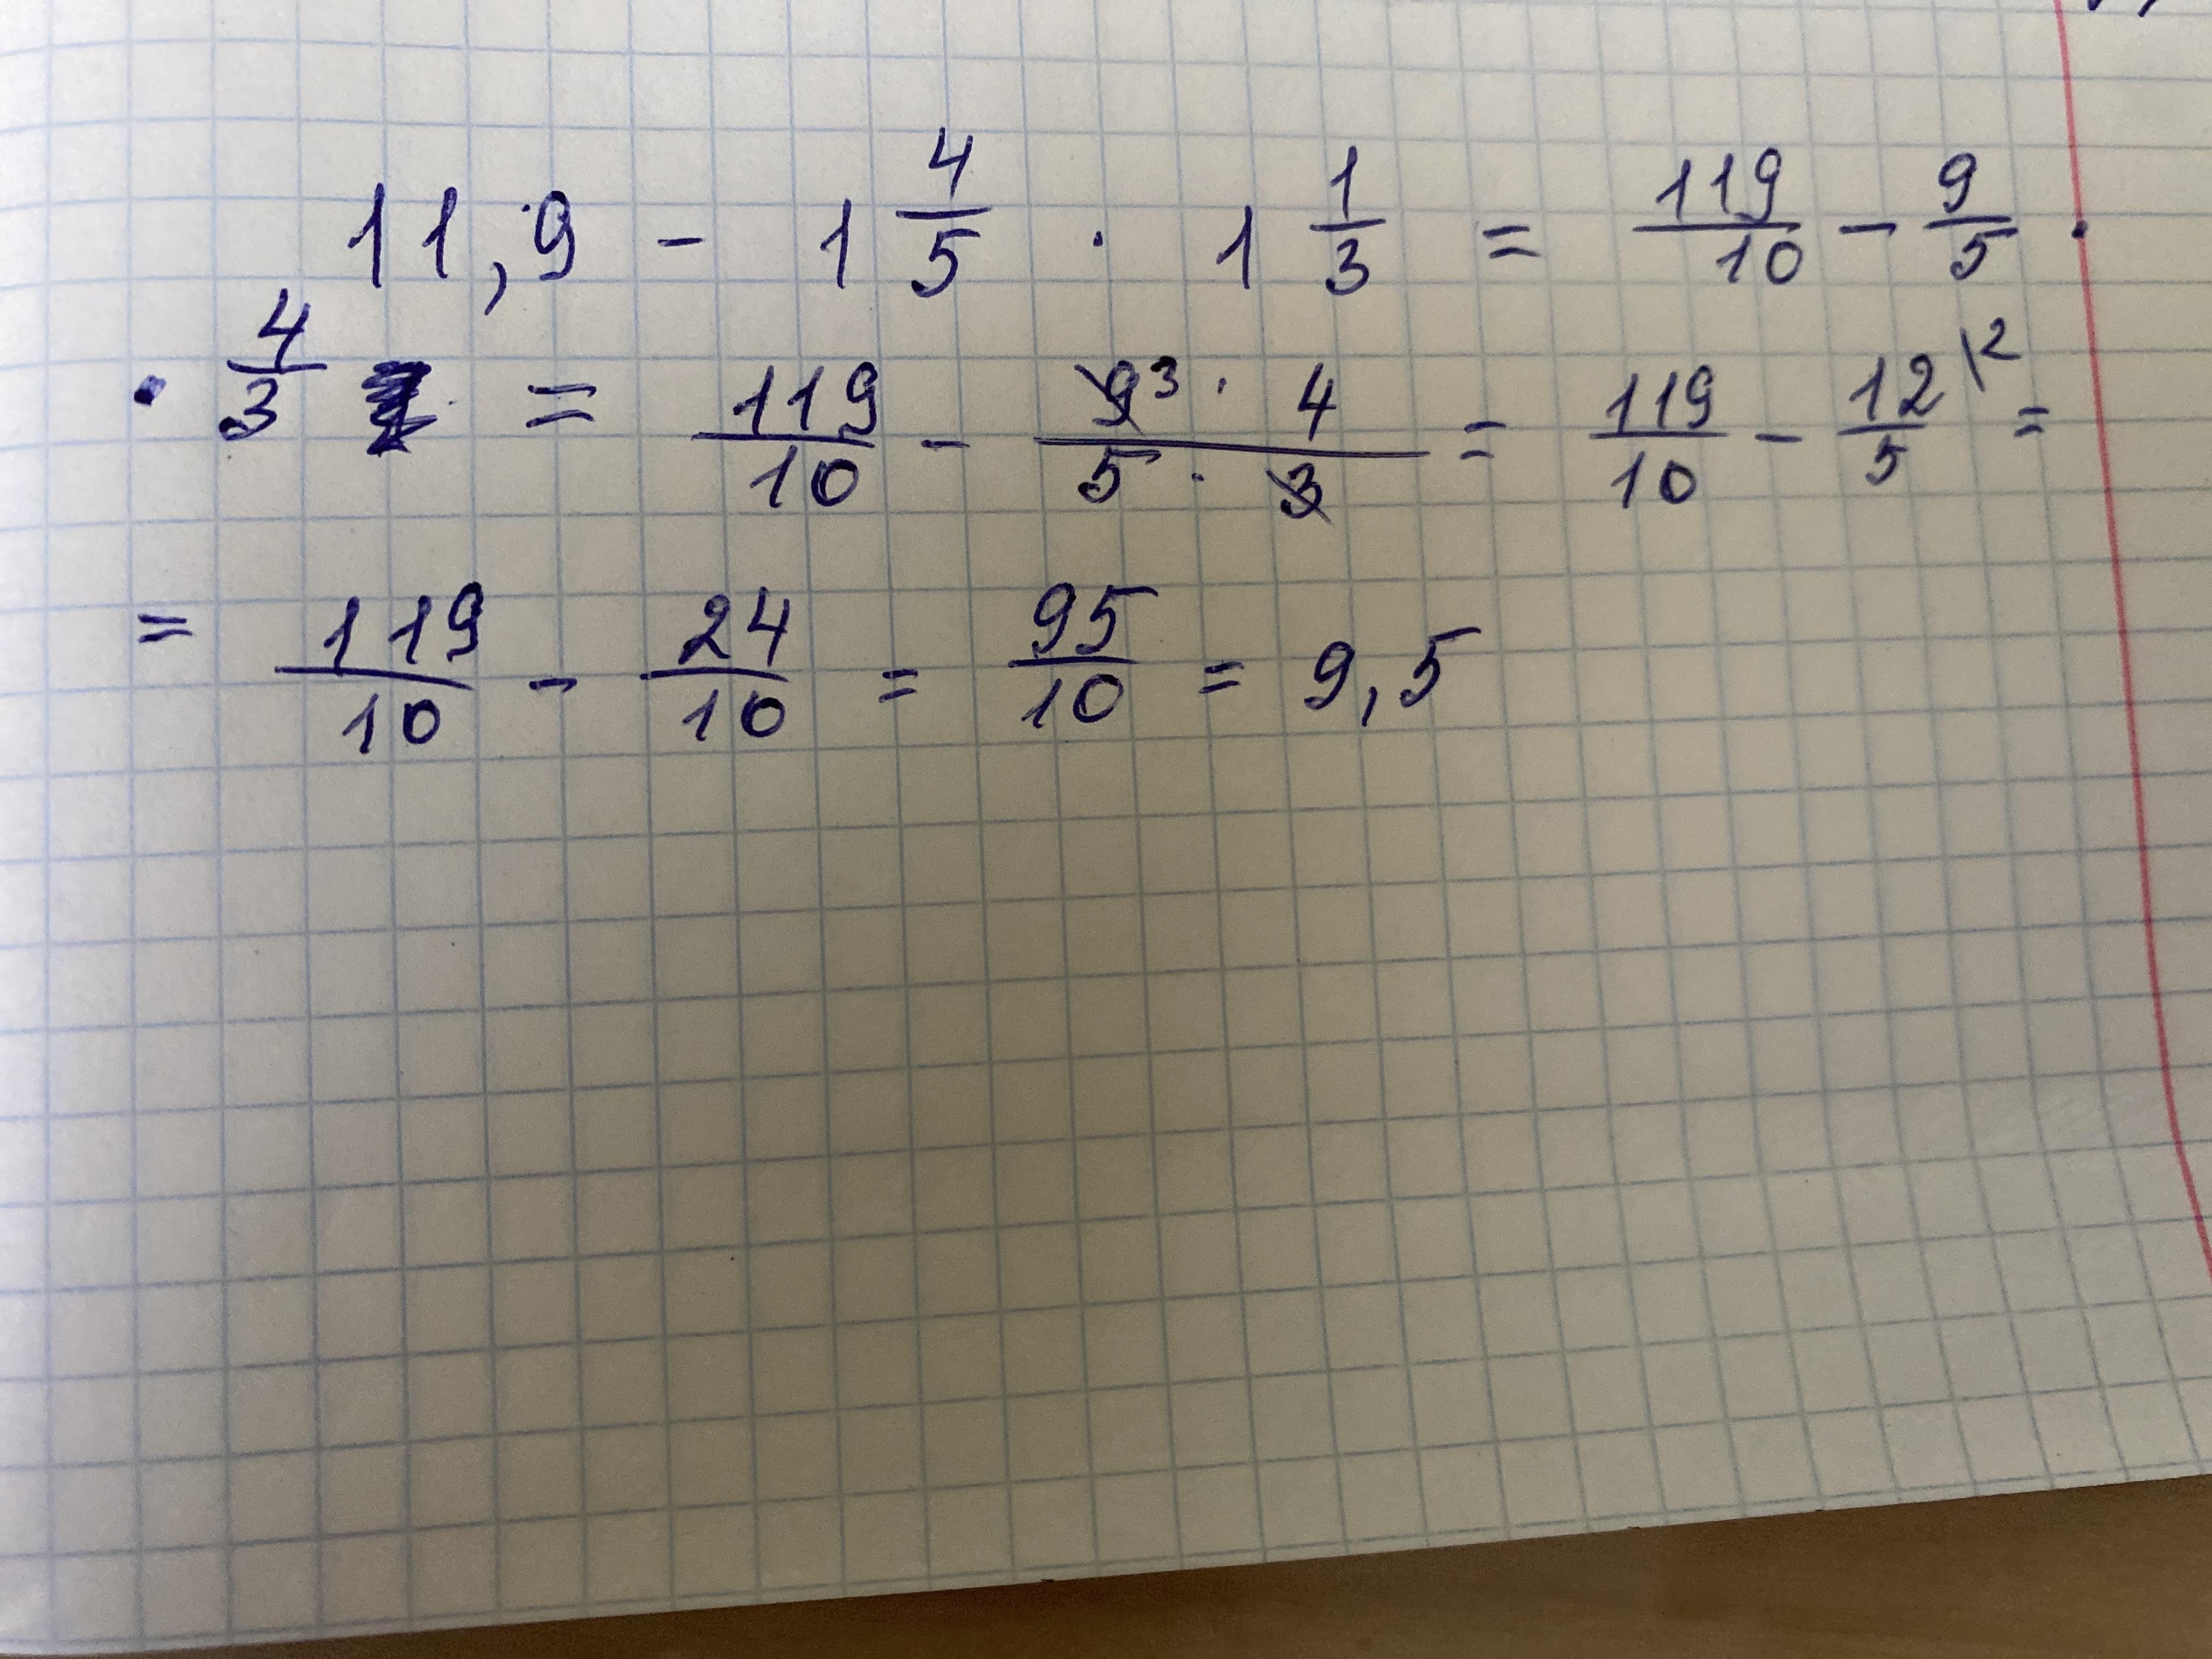 11,9 - 1 4/5 · 1 1/3 = 119/10 - 9/5 ·
· 4/3 = 119/10 - 9³ · 4 / 5 · 3 = 119/10 - 12/5 \² =
= 119/10 - 24/10 = 95/10 = 9,5